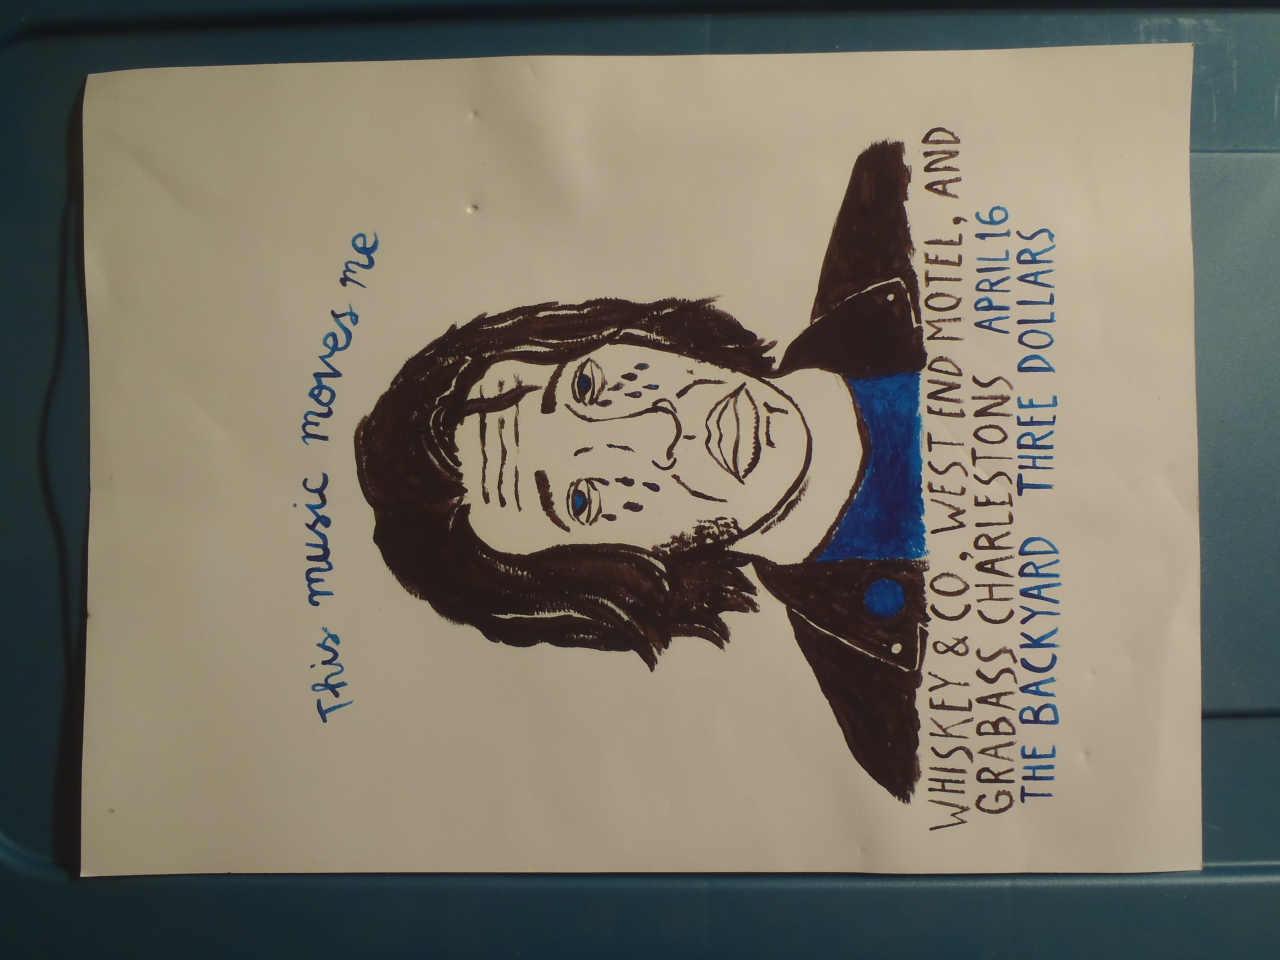 This music moves me
WHISKEY & CO, WEST END MOTEL, AND
GRABASS CHARLESTONS APRIL 16
THE BACKYARD THREE DOLLARS